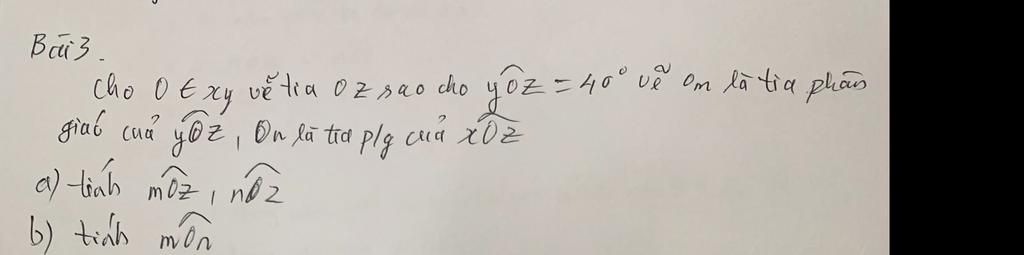 Bài 3.
Cho O ∈ xy vẽ tia Oz sao cho yOz = 40° vẽ Om là tia phân
giác của yOz, On là tia p/g của xOz
a) tính mOz, nOz
b) tính mOn